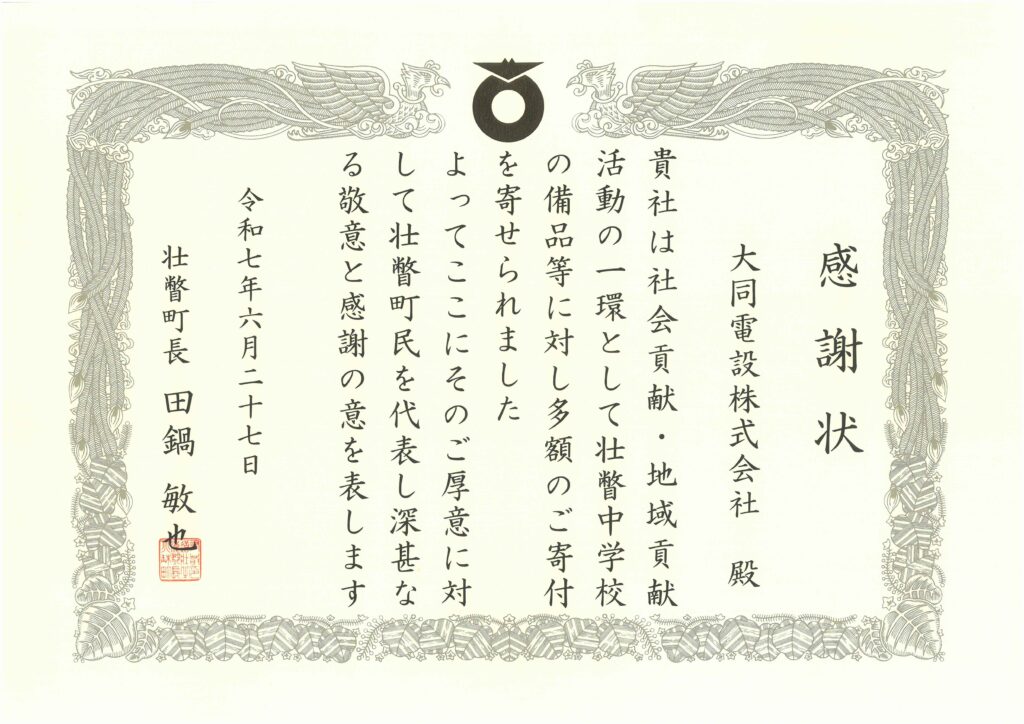 感謝状
大同電設株式会社 殿
貴社は社会貢献・地域貢献
活動の一環として壮瞥中学校
の備品等に対し多額のご寄付
を寄せられました
よってここにそのご厚意に対
して壮瞥町民を代表し深甚な
る敬意と感謝の意を表します
令和七年六月二十七日
壮瞥町長 田鍋 敏也